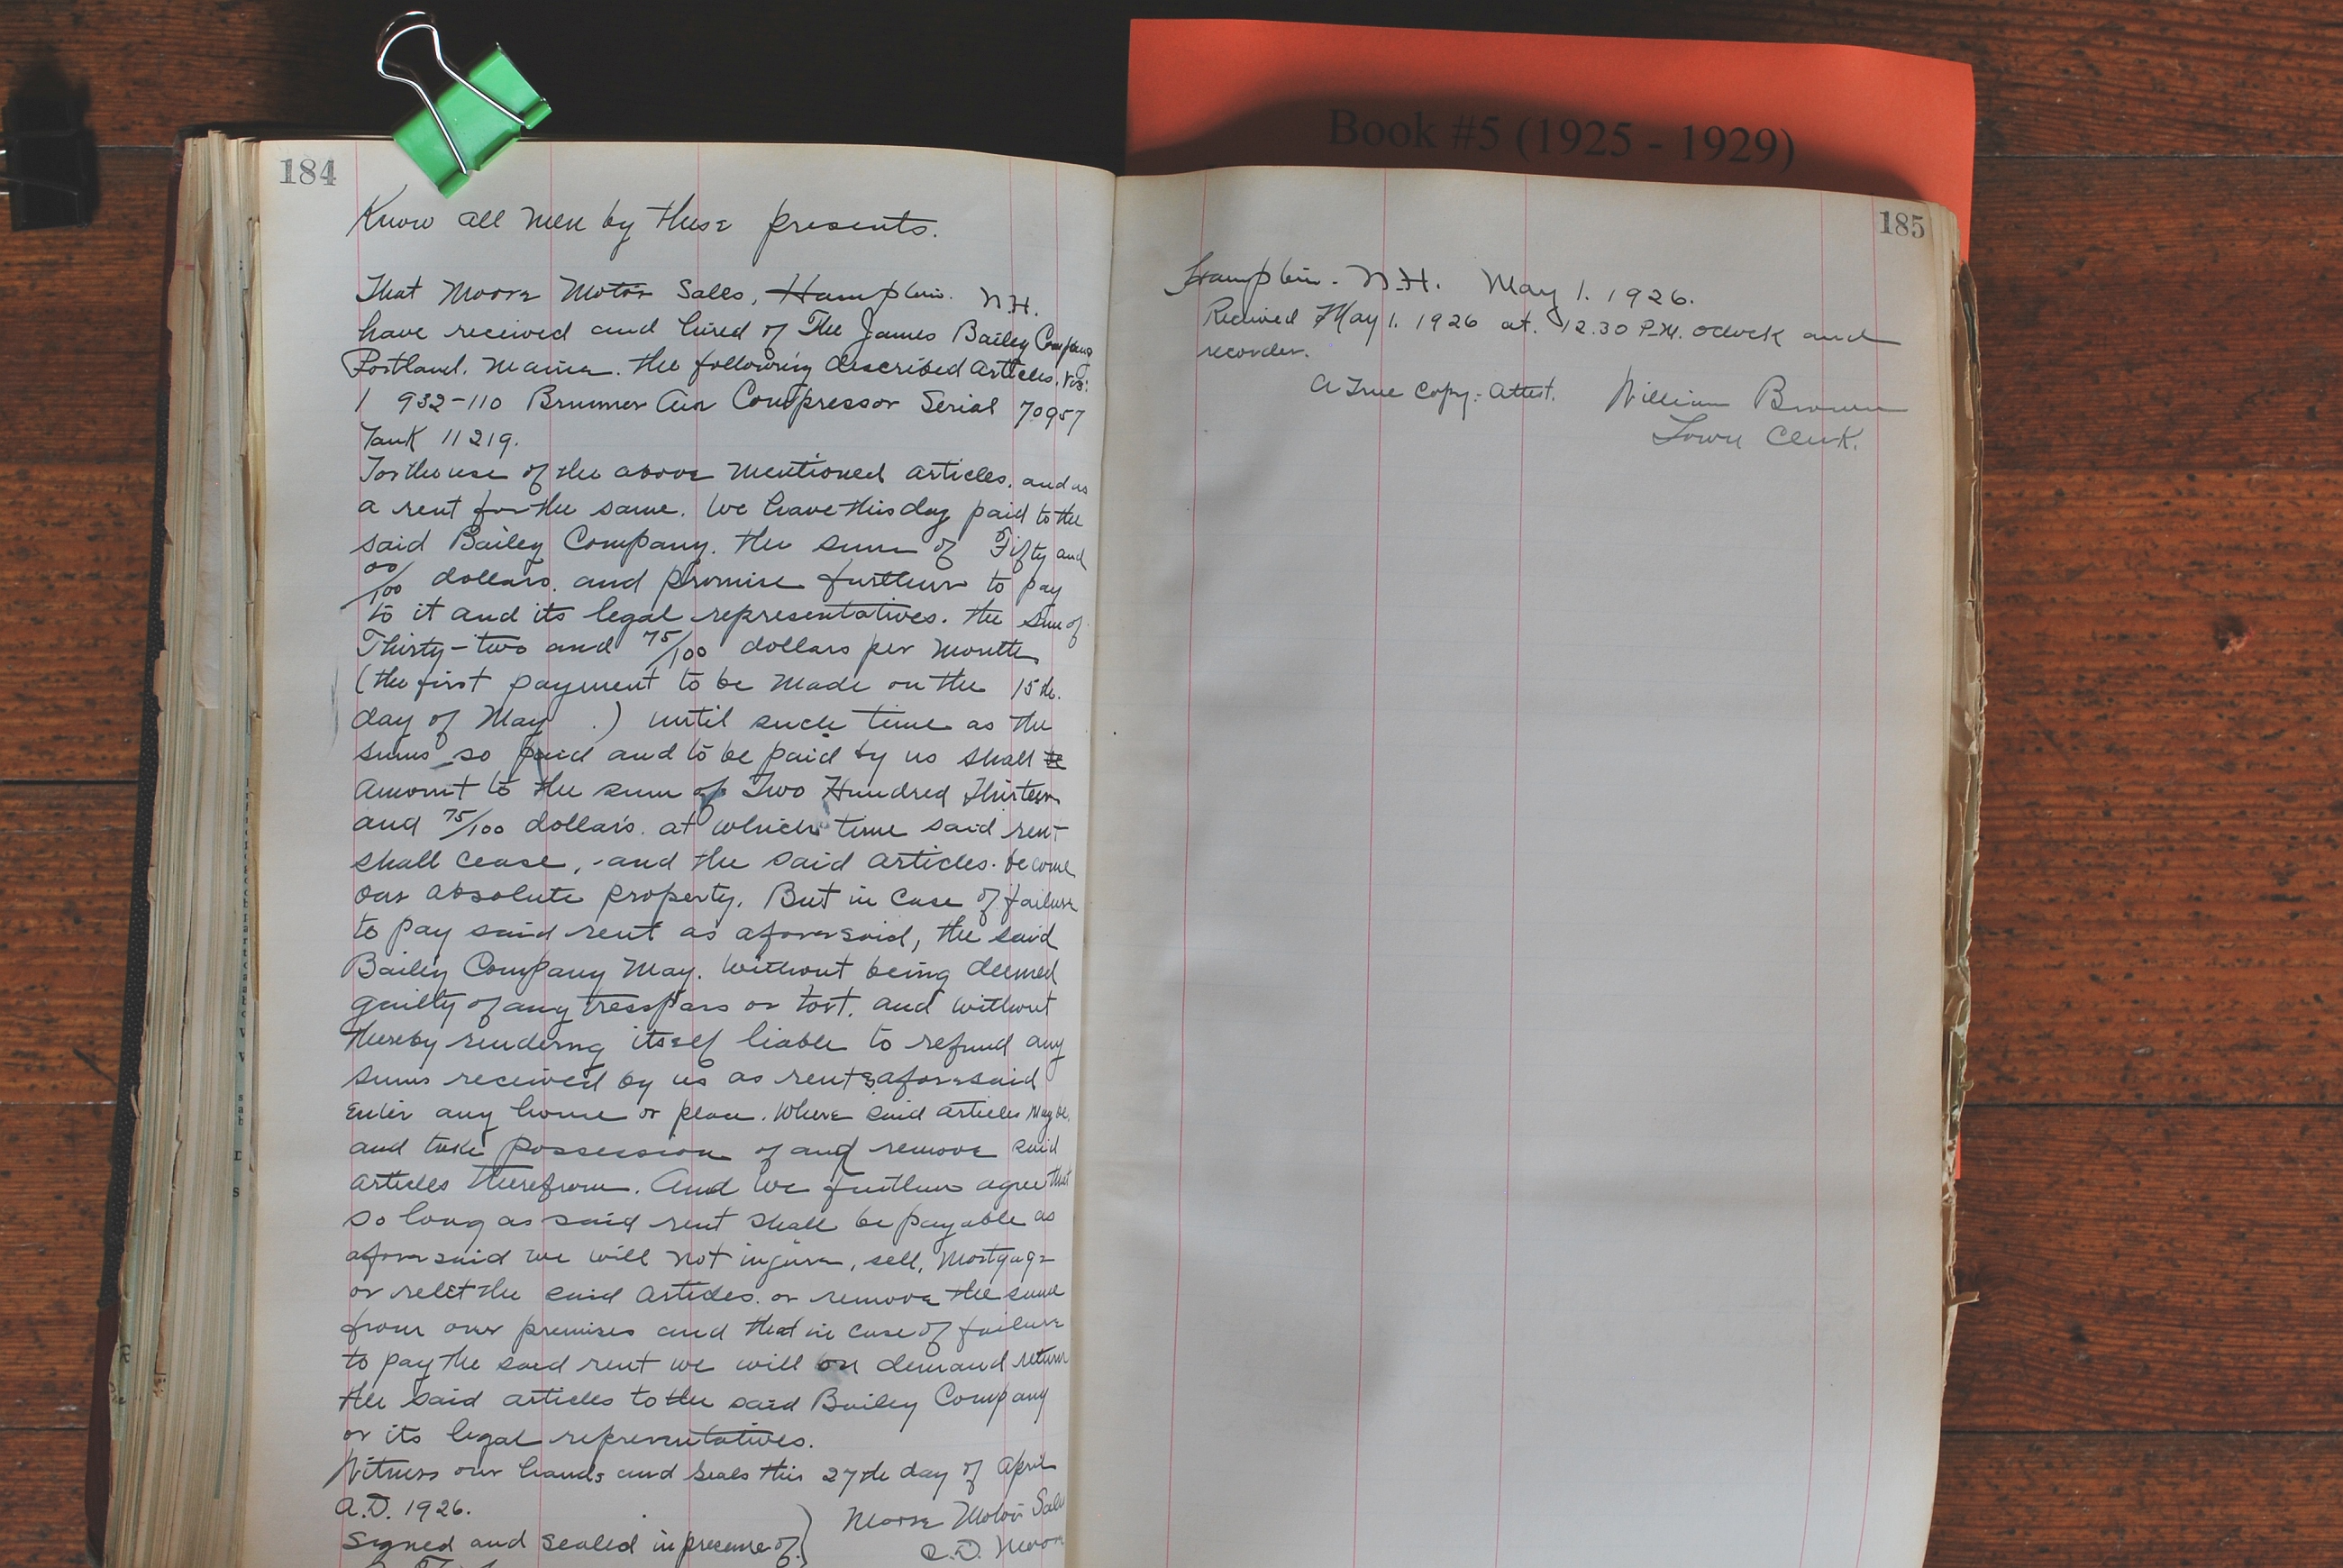 Book #5 (1925 - 1929)
184
Know all men by these presents.
That Moore Motor Sales, Hampton. N.H.
have received and hired of The James Bailey Company
Portland, Maine. the following described Articles, viz:
1 932-110 Brunner Air Compressor Serial 70957
Tank 11219.
For the use of the above mentioned articles, and as
a rent for the same. We have this day paid to the
said Bailey Company. the sum of Fifty and
00/100 dollars, and promise further to pay
to it and its legal representatives. the sum of
Thirty-two and 75/100 dollars per month
(the first payment to be made on the 15th.
day of May .) until such time as the
sums so paid and to be paid by us shall be
amount to the sum of Two Hundred Thirteen
and 75/100 dollars. at which time said rent
shall cease, and the said articles. become
our absolute property. But in case of failure
to pay said rent as aforesaid, the said
Bailey Company May. Without being deemed
guilty of any tresspass or tort, and without
thereby rendering itself liable to refund any
sums received by us as rent aforesaid
Enter any home or place. Where said articles may be,
and take possession of and remove said
articles therefrom. And we further agree that
so long as said rent shall be payable as
aforesaid we will not injure, sell, Mortgage
or relet the said Articles. or remove the same
from our premises and that in case of failure
to pay the said rent we will on demand return
the said articles to the said Bailey Company
or its legal representatives.
Witness our hands and seals this 27th day of April
A.D. 1926.
Signed and sealed in presence of } Moore Motor Sales
Moore
185
Hampton. N.H. May 1. 1926.
Received May 1. 1926 at. 12.30 P.M. oclock and
recorder.
A True Copy: Attest. William Brown
Town Clerk.